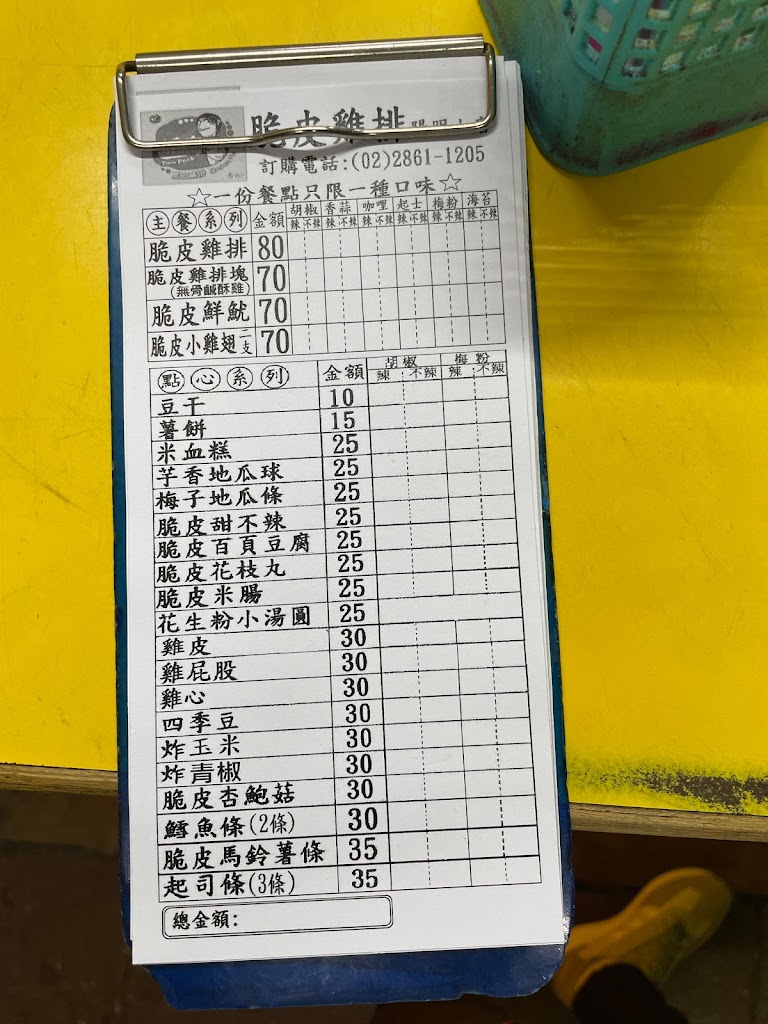 脆皮雞排
訂購電話:(02)2861-1205
☆一份餐點只限一種口味☆
主餐系列 金額 胡椒 香蒜 咖哩 起士 梅粉 海苔
辣 不辣 辣 不辣 辣 不辣 辣 不辣 辣 不辣 辣 不辣
脆皮雞排 80
脆皮雞排塊 70
(無骨鹹酥雞)
脆皮鮮魷 70
脆皮小雞翅二支 70
點心系列 金額 胡椒 梅粉
辣 不辣 辣 不辣
豆干 10
薯餅 15
米血糕 25
芋香地瓜球 25
梅子地瓜條 25
脆皮甜不辣 25
脆皮百頁豆腐 25
脆皮花枝丸 25
脆皮米腸 25
花生粉小湯圓 25
雞皮 30
雞屁股 30
雞心 30
四季豆 30
炸玉米 30
炸青椒 30
脆皮杏鮑菇 30
鱈魚條(2條) 30
脆皮馬鈴薯條 35
起司條(3條) 35
總金額: